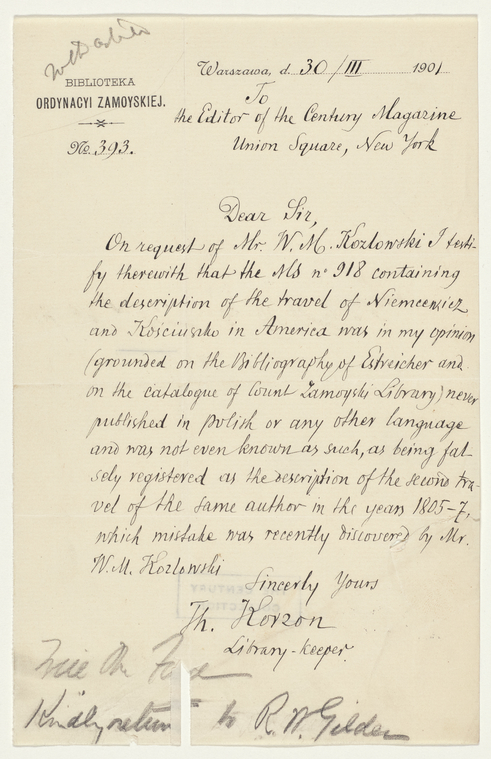 BIBLIOTEKA
ORDYNACYI ZAMOYSKIEJ.
No. 393.
Warszawa, d. 30/III 1901
To
the Editor of the Century Magazine
Union Square, New York
Dear Sir,
On request of Mr. W. M. Kozlowski I testi-
fy therewith that the MS nº 918 containing
the description of the travel of Niemcewicz
and Kościuszko in America was in my opinion
(grounded on the Bibliography of Estreicher and
on the catalogue of Count Zamoyski Library) never
published in Polish or any other language
and was not even known as such, as being fal-
sely registered as the description of the second tra-
vel of the same author in the years 1805-7,
which mistake was recently discovered by Mr.
W. M. Kozlowski
Sincerly Yours
Th. Korzon
Library-keeper.
Kindly return to R. W. Gilder